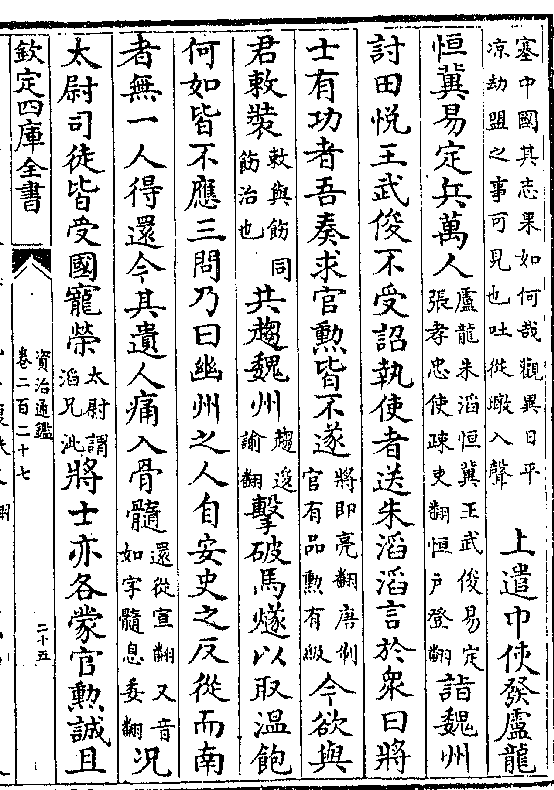 塞中國其志果如何哉觀異日平
凉劫盟之事可見也吐從暾入聲
上遣中使發盧龍
恒冀易定兵萬人
盧龍朱滔恒冀王武俊易定
張孝忠使疎吏翻恒戶登翻
詣魏州
討田悦王武俊不受詔執使者送朱滔滔言於衆曰將
士有功者吾奏求官勲皆不遂
將即亮翻唐制
官有品勲有級
今欲與
君敕裝
敕與飭同
飭治也
共趨魏州
趨逡
諭翻
擊破馬燧以取温飽
何如皆不應三問乃曰幽州之人自安史之反從而南
者無一人得還今其遺人痛入骨髓
還從宣翻又音
如字髓息委翻
况
太尉司徒皆受國寵榮
太尉謂
滔兄泚
將士亦各蒙官勲誠且
欽定四庫全書
資治通鑑
卷二百二十七
二十五